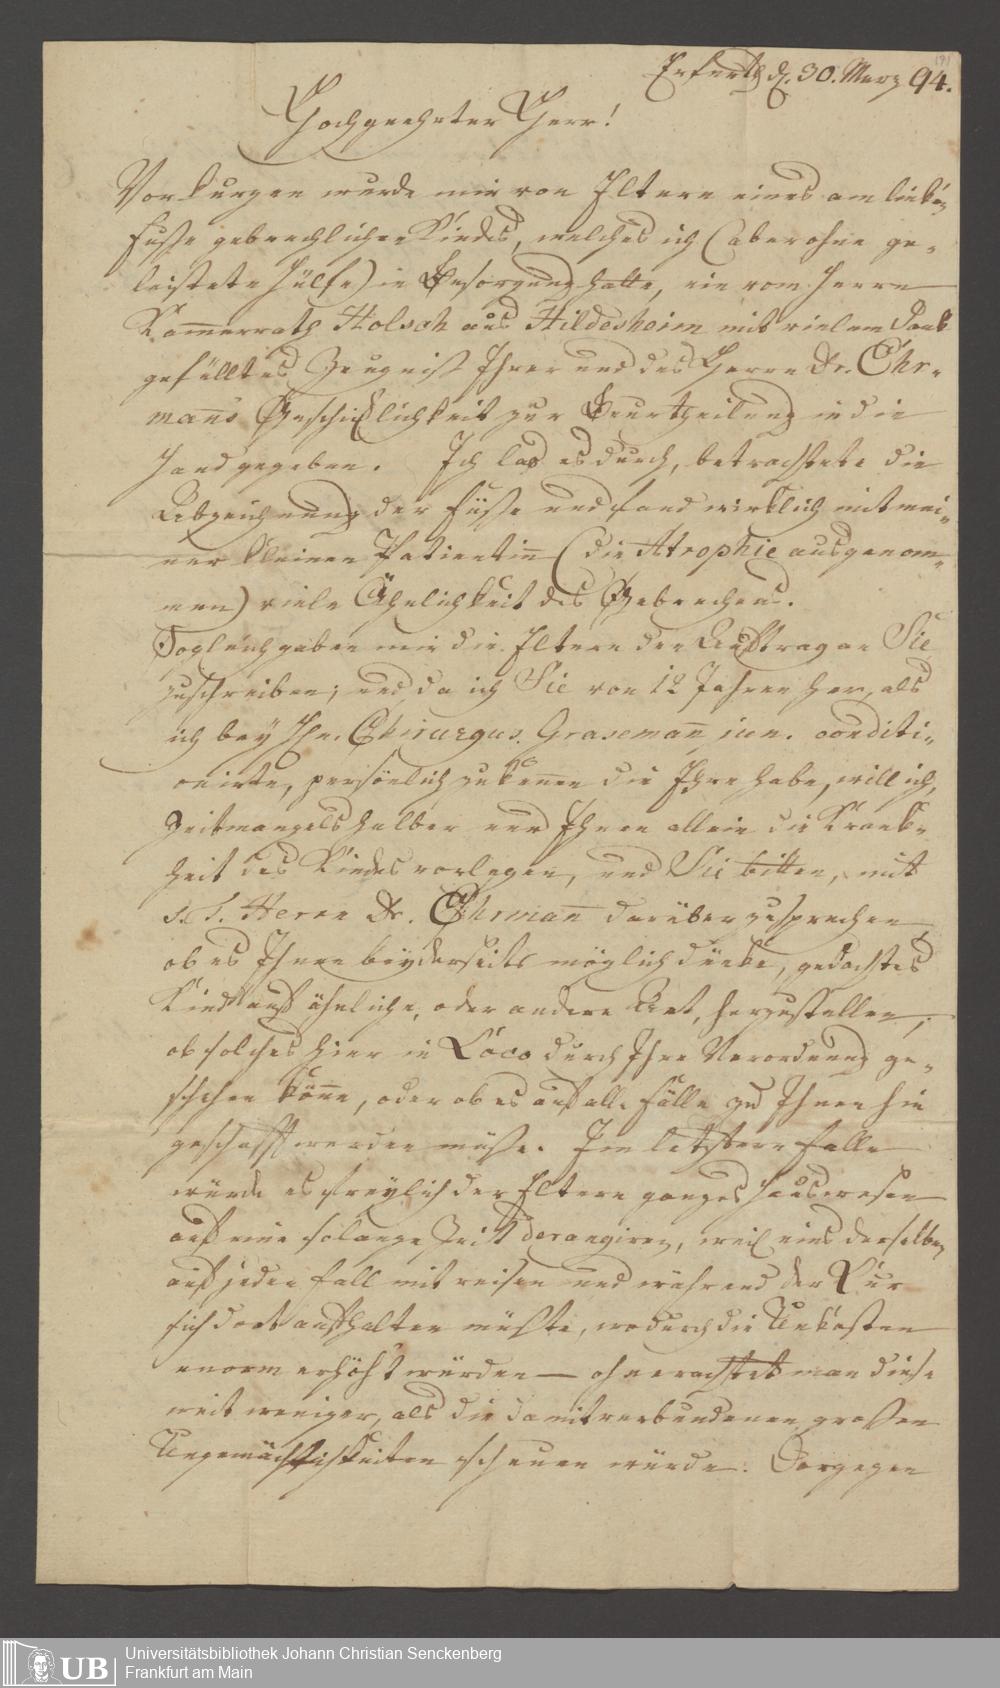 Erfurth d. 30. Merz 94.
Hochgeehrter Herr!
Vor kurzen wurde mir von Eltern eines am linken
Fuße gebrechlichen Kindes, welches ich (aber ohne ge-
leistete Hülfe) in Besorgung hatte, ein vom Herrn
Kam̅errath Holsch aus Hildesheim mit vielem Dank
gefülltes Zeugniß Ihrer und des Herrn Dr. Ehr-
man̅s Geschicklichkeit zur Beurtheilung in die
Hand gegeben. Ich las es durch, betrachtete die
Abzeichnung der Füße und fand wirklich mit mei-
ner kleinen Patientin̅ (die Atrophie ausgenom-
men) viele Ähnlichkeit des Gebrechens.
Sogleich gaben mir die Eltern den Auftrag an Sie
zu schreiben; und da ich Sie von 12 Jahren her, als
ich bey Hn. Chirurgus Graseman̅ jun. conditi-
onirte, persönlich zu ken̅en die Ehre habe, will ich,
Zeitmangels halber nur Ihnen allein die Krank-
heit des Kindes vorlegen, und Sie bitten, mit
s. T. Herrn Dr. Ehrman̅ darüber zu sprechen
ob es Ihnen beyderseits möglich dünke, gedachtes
Kind auf ähnliche, oder andere Art, herzustellen;
ob solches hier in Loco durch Ihre Verordnung ge-
schehen kön̅e, oder ob es auf alle Fälle zu Ihnen hin
geschafft werden müße. Im letztern Falle
würde es freylich der Eltern ganzes Hauswesen
auf eine so lange Zeit derangiren, weil eins derselben
auf jeden Fall mit reisen und während der Kur
sich dort aufhalten müßte, wodurch die Unkosten
enorm erhöht würden — ohnerachtet man diese
weit weniger, als die damit verbundenen großen
Ungemächlichkeiten scheuen würde. Dargegen
Universitätsbibliothek Johann Christian Senckenberg
Frankfurt am Main
UB